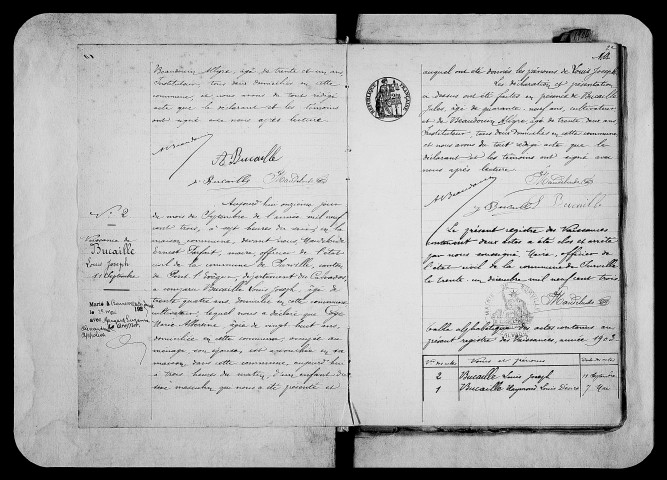 Beaudouin Alfyre, âgé de trente et un ans
Instituteur, tous deux domiciliés en cette
commune, et nous avons de tout rédigé
acte que le déclarant et les témoins
ont signé avec nous après lecture.
A. Bucaille
J. Bucaille
N° 2
Naissance de
Bucaille
Louis Joseph
11 Septembre
Marié à
le
avec
Aujourd'hui onzième jour
du mois de Septembre de l'année mil neuf
cent trois, à sept heures du soir, en la
maison commune, devant nous
Ernest maire, officier de l'état
civil de la commune de canton
de Pont l'Evêque, département du Calvados
a comparu Bucaille Louis Joseph, âgé de
trente quatre ans, domicilié en cette commune
cultivateur, lequel nous a déclaré que
Marie âgée de vingt huit ans,
domiciliée en cette commune, occupée au
ménage, son épouse, est accouchée en sa
maison, dans cette commune, aujourd'hui
à trois heures du matin, d'un enfant du
sexe masculin, qui nous a été présenté et
auquel ont été donnés les prénoms de Louis Joseph
Les déclaration et présentation
ci dessus ont été faites en présence de Bucaille
Jules, âgé de quarante neuf ans, cultivateur
et de Beaudouin Alfyre, âgé de trente deux ans
Instituteur, tous deux domiciliés en cette commune
et nous avons de tout rédigé acte que le
déclarant et les témoins ont signé avec
nous après lecture.
J. Bucaille L. Bucaille
Le présent registre des Naissances
contenant deux actes a été clos et arrêté
par nous soussigné Maire, officier de
l'état civil de la commune de
le trente un décembre mil neuf cent trois.
Table alphabétique des actes contenus au
présent registre des Naissances, année 1903.
Nos des actes Noms et prénoms Date des actes
2 Bucaille Louis Joseph 11 Septembre
1 Bucaille Raymond Louis Désiré 7 Mai